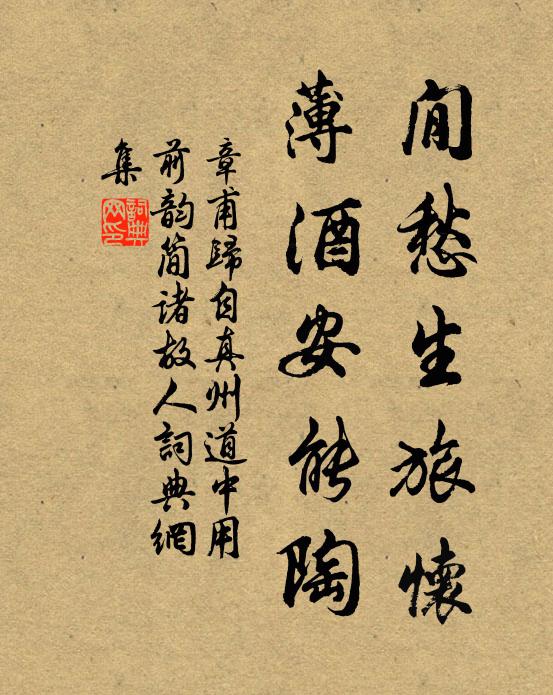 閒愁生旅懷
薄酒安能陶
章甫歸自真州道中用
前韵简诸故人詞典網
集
詞典
网印